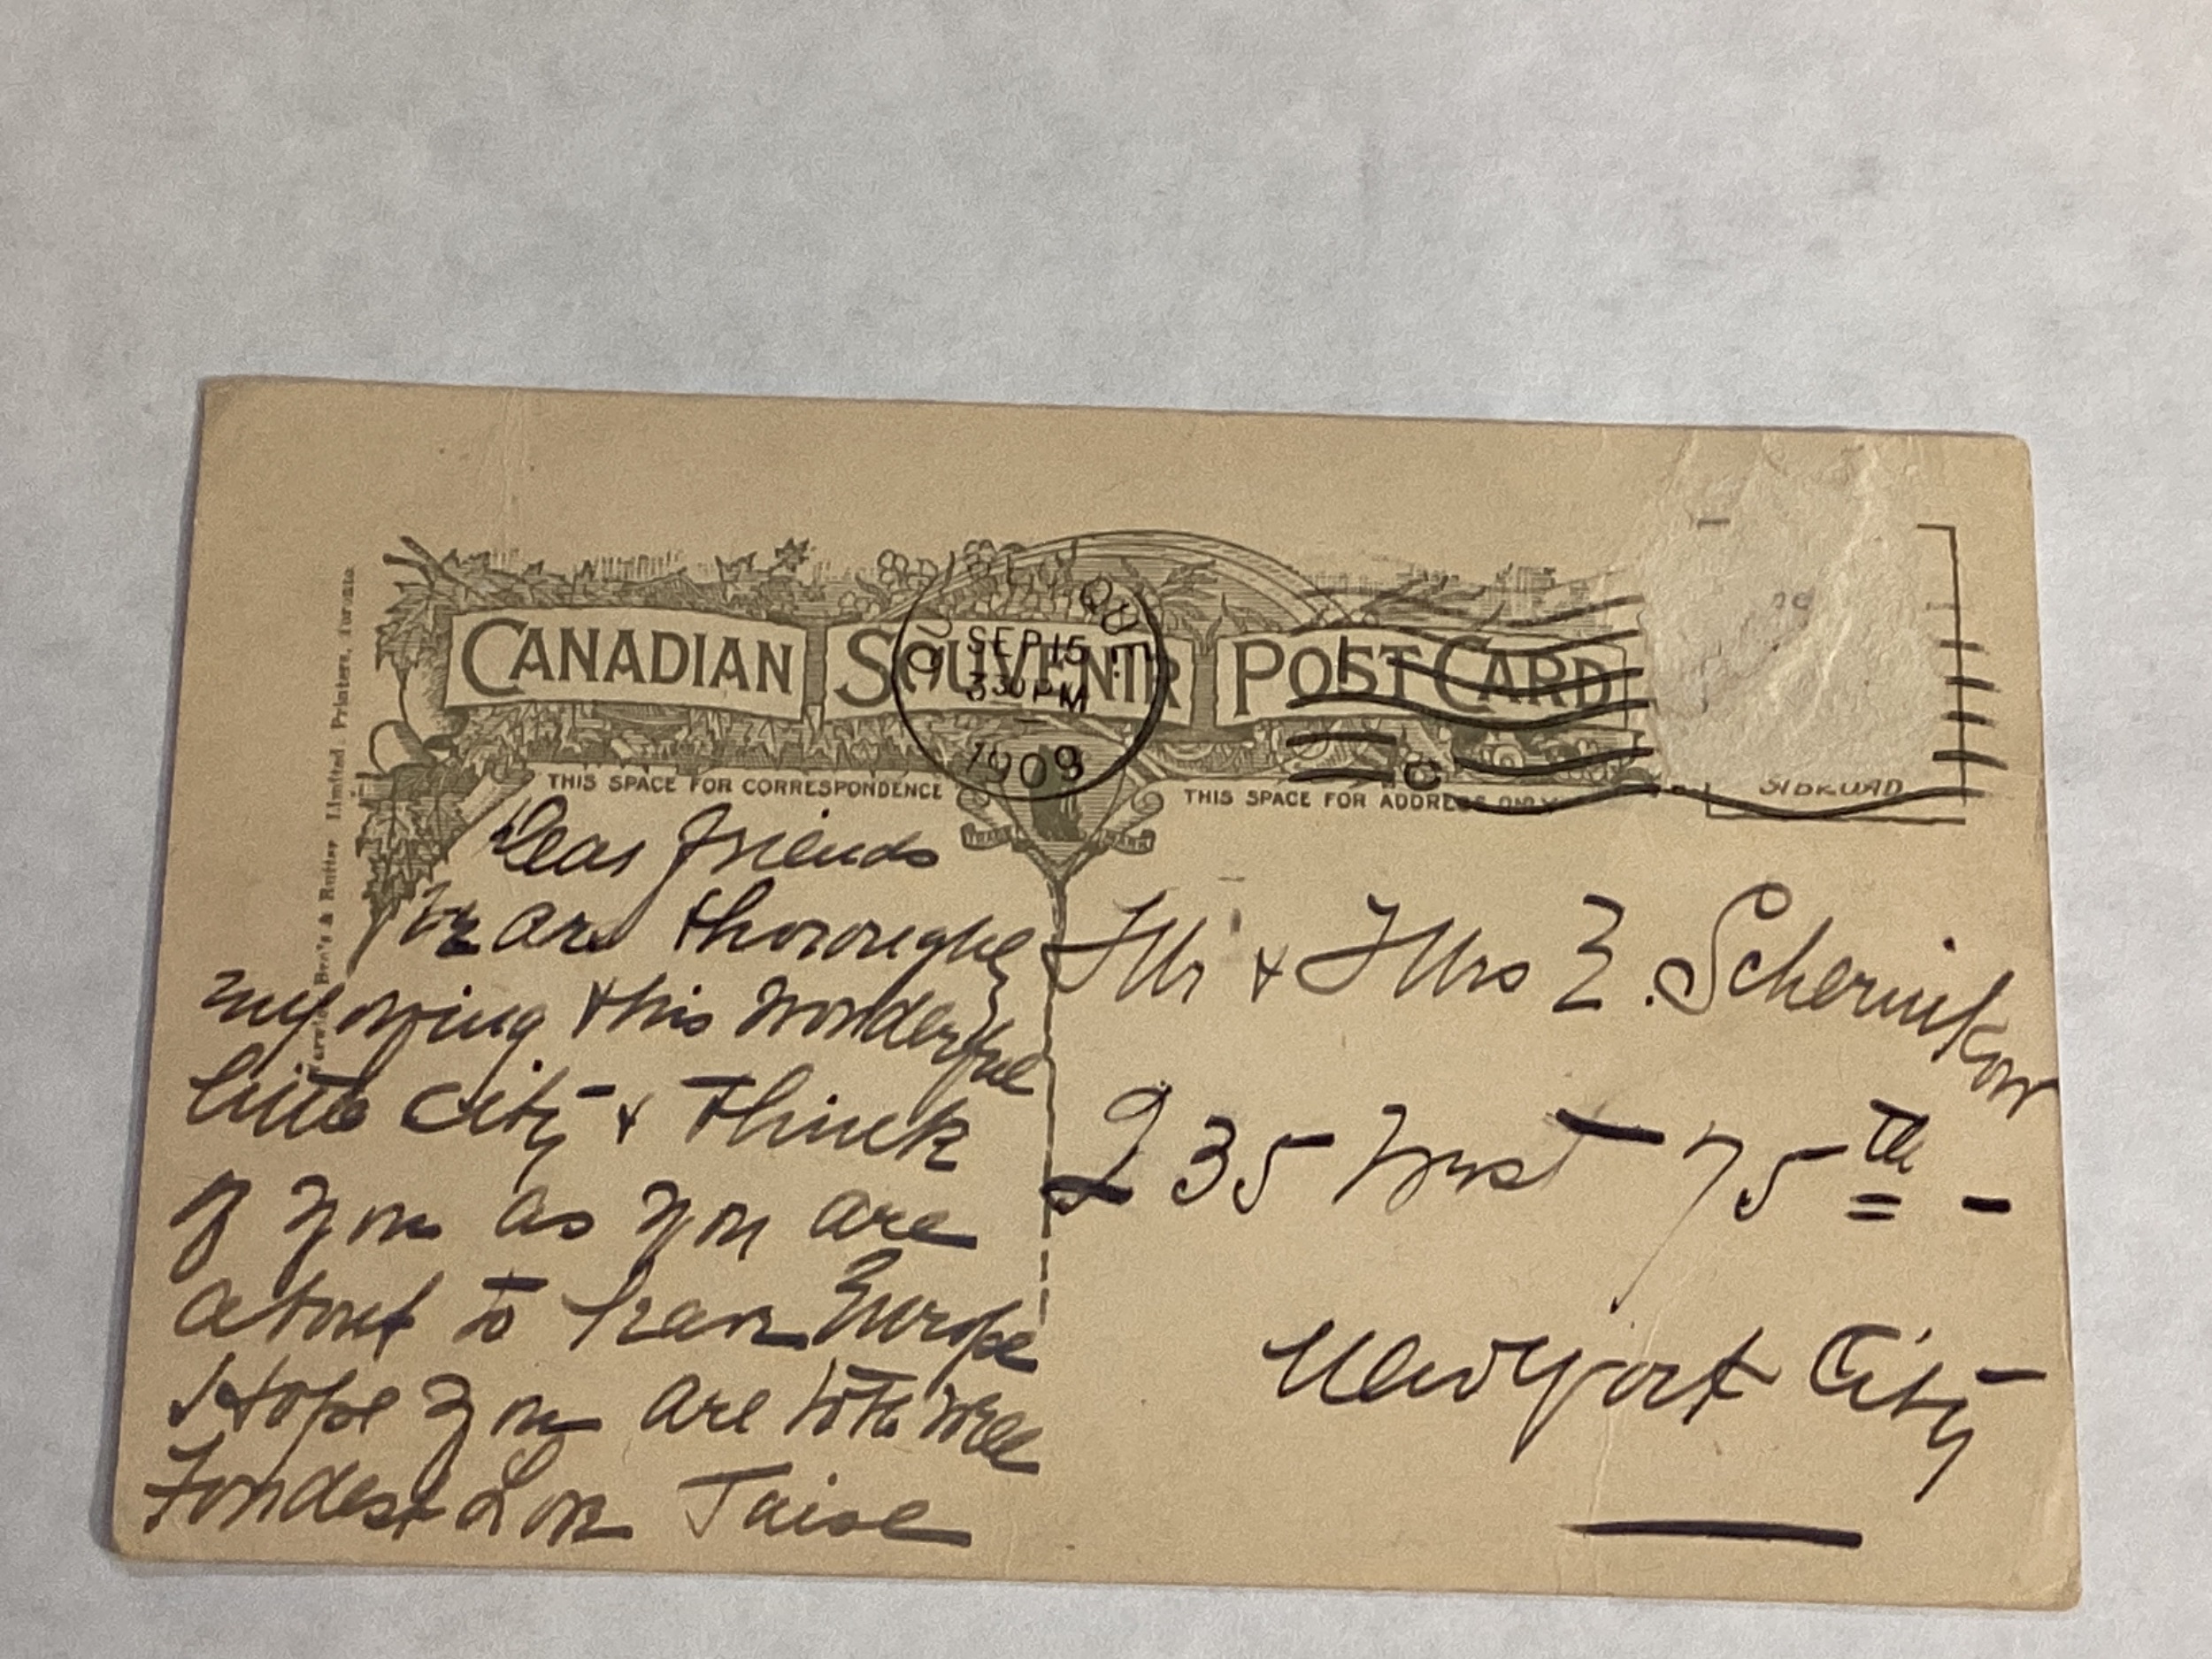 CANADIAN SOUVENIR POST CARD
SEP 15
330 PM
1909
THIS SPACE FOR CORRESPONDENCE
THIS SPACE FOR ADDRESS ONLY
Limited, Printers, Toronto.
Dear Friends
We are thoroughly
enjoying this wonderful
little City & think
of you as you are
about to leave Europe
I Hope you are both well
Fondest Love
Mr & Mrs E. Schernikow
235 West 75th -
New York City